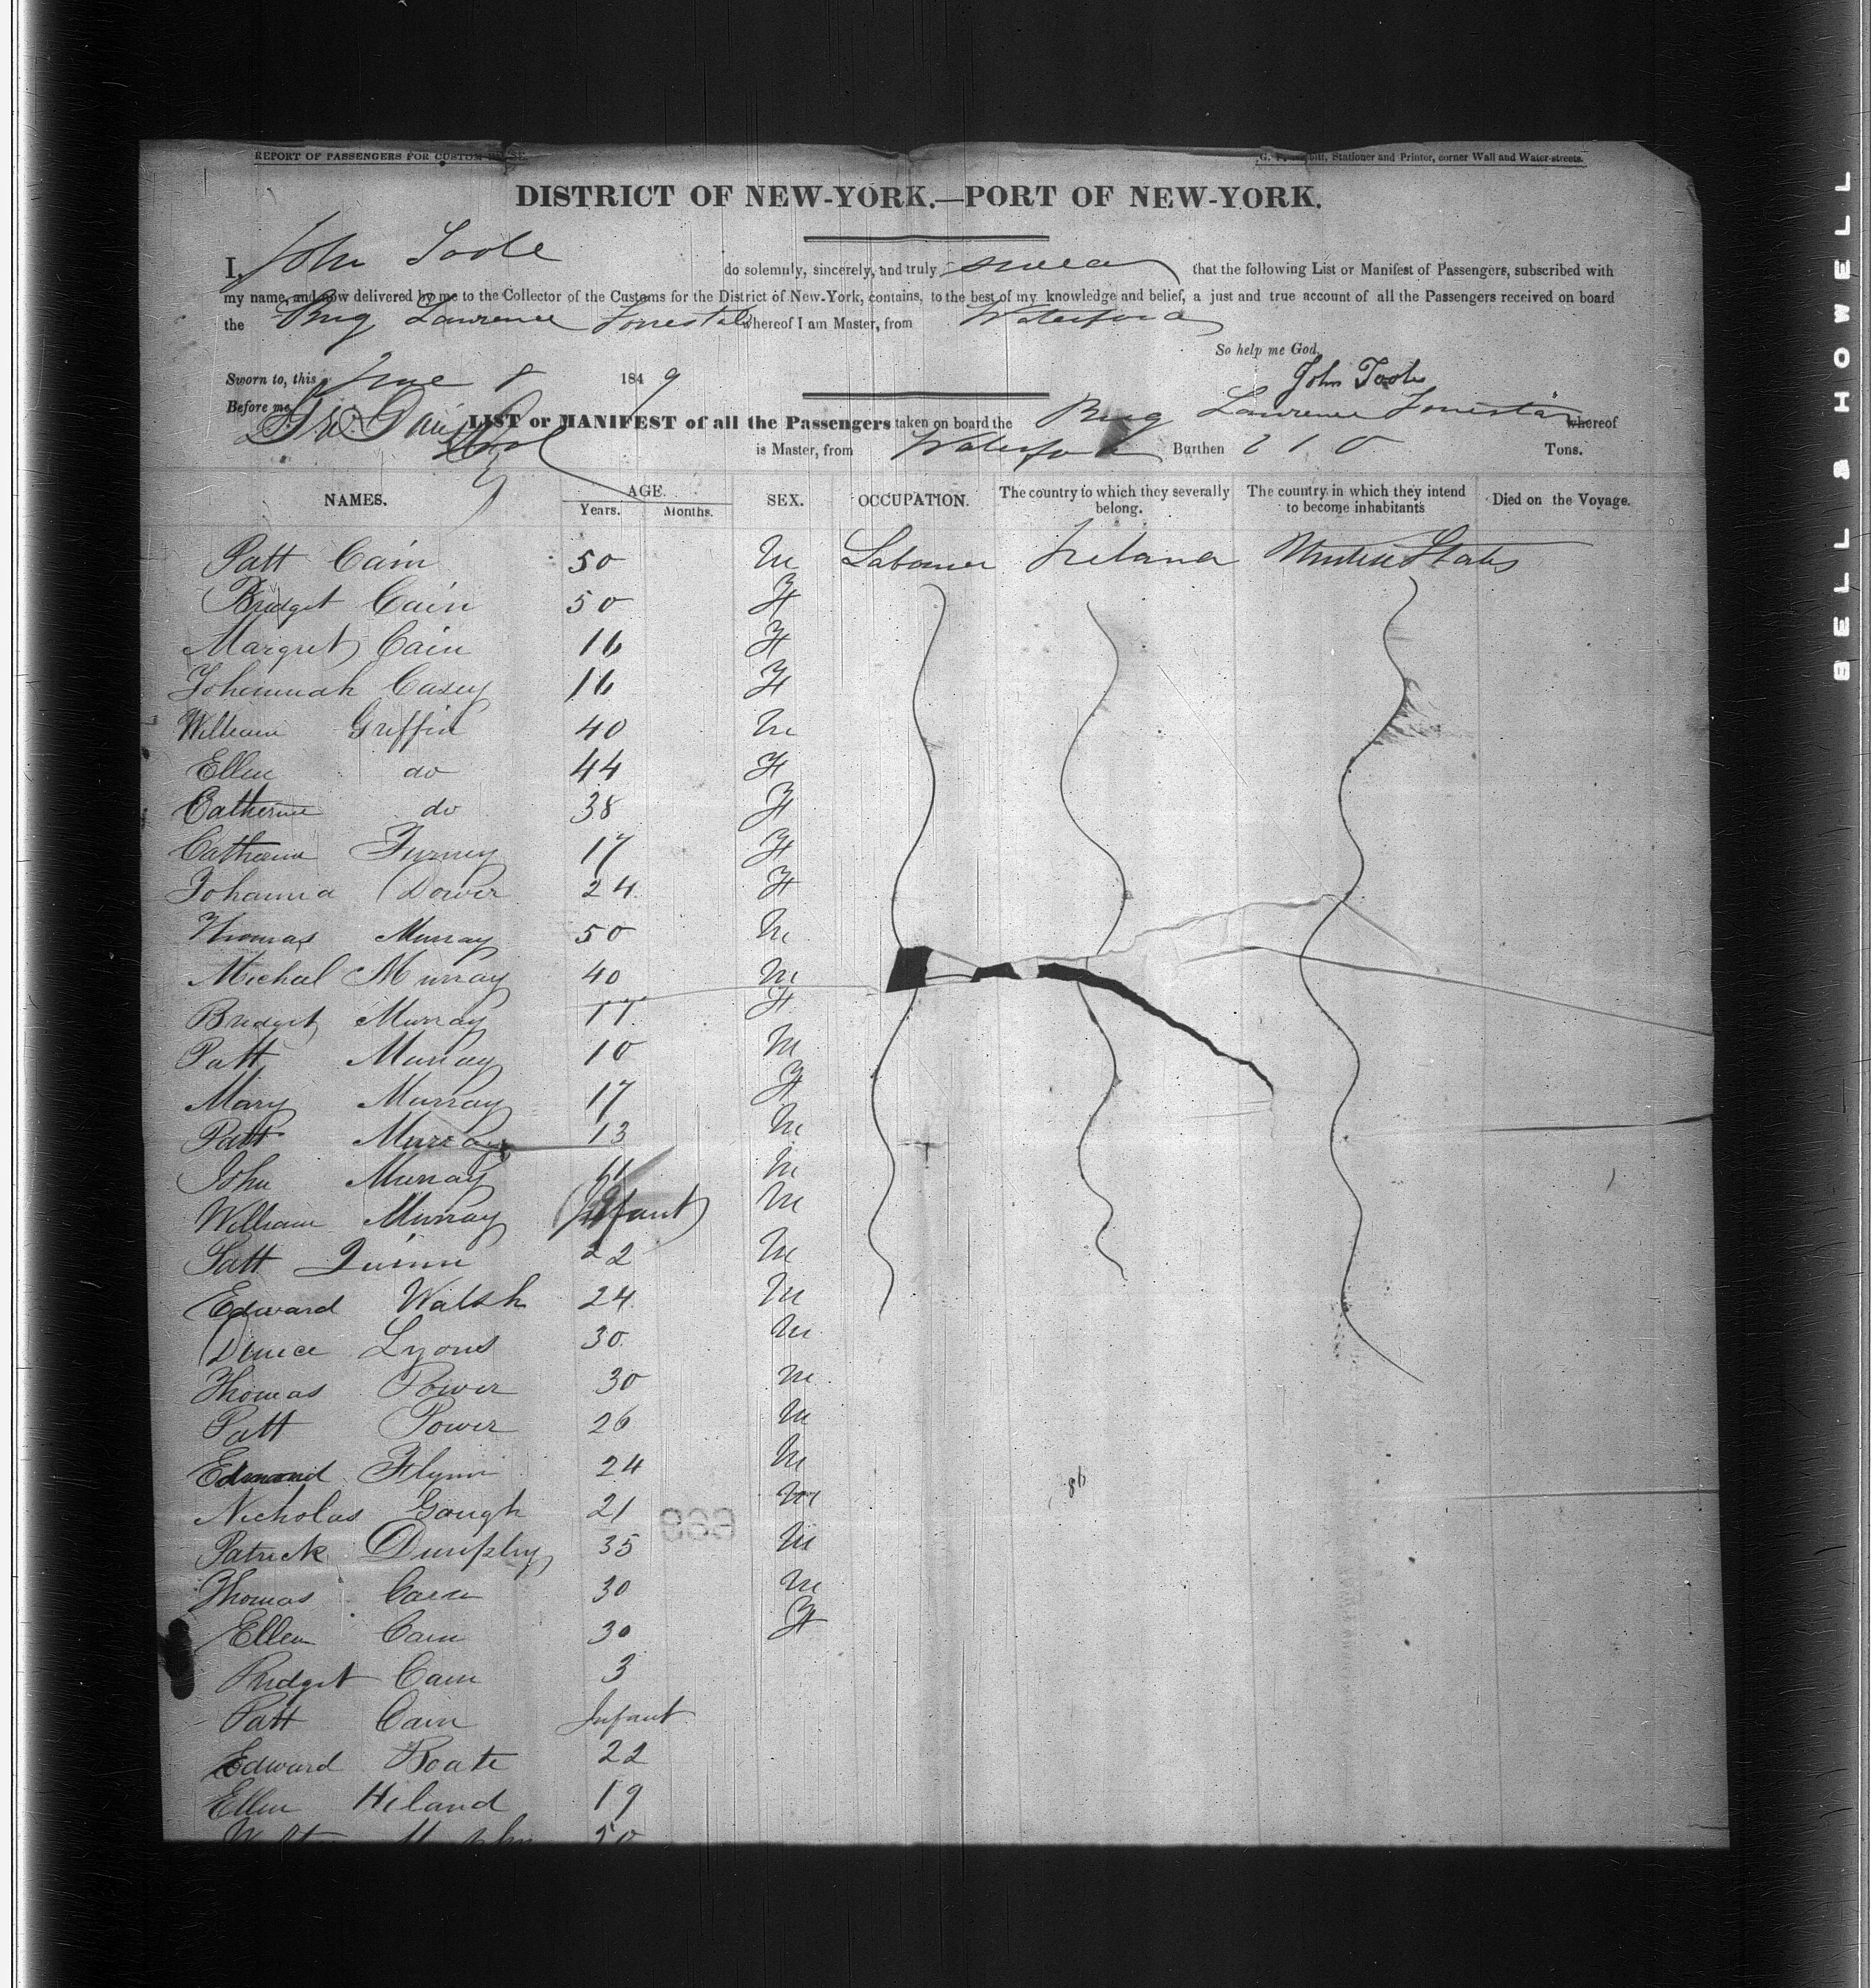 REPORT OF PASSENGERS FOR CUSTOM
Stationer and Printer, corner Wall and Water-streets.
DISTRICT OF NEW-YORK.—PORT OF NEW-YORK.
I, John Toole do solemnly, sincerely, and truly swear that the following List or Manifest of Passengers, subscribed with
my name, and now delivered by me to the Collector of the Customs for the District of New-York, contains, to the best of my knowledge and belief, a just and true account of all the Passengers received on board
the Brig Lawrence Forrestal whereof I am Master, from Waterford
So help me God,
Sworn to, this June 8 1849 John Toole
Before me,
LIST or MANIFEST of all the Passengers taken on board the Brig Lawrence Forrestal whereof
is Master, from Waterford Burthen 210 Tons.
NAMES. AGE. Years. Months. SEX. OCCUPATION. The country to which they severally belong. The country in which they intend to become inhabitants Died on the Voyage.
Patt Cain 50 M Labourer Ireland United States
Bridget Cain 50 F
Margret Cain 16 F
Johennah Casey 16 F
William Griffin 40 M
Ellen do 44 F
Catherine do 38 F
Catherine Furney 17 F
Johanna Dower 24 F
Thomas Murray 50 M
Michael Murray 40 M
Bridget Murray 17 F
Patt Murray 10 M
Mary Murray 17 F
Patt Murray 13 M
John Murray 11 M
William Murray (Infant) M
Patt Quinn 22 M
Edward Walsh 24 M
Lyons 30 M
Thomas Power 30 M
Patt Power 26 M
Edmond Flynn 24 M
Nicholas Gough 21 M
Patrick Dunphy 35 M
Thomas Cain 30 M
Ellen Cain 30 F
Bridget Cain 3
Patt Cain Infant
Edward Roate 22
Ellen Hiland 19
BELL & HOWELL